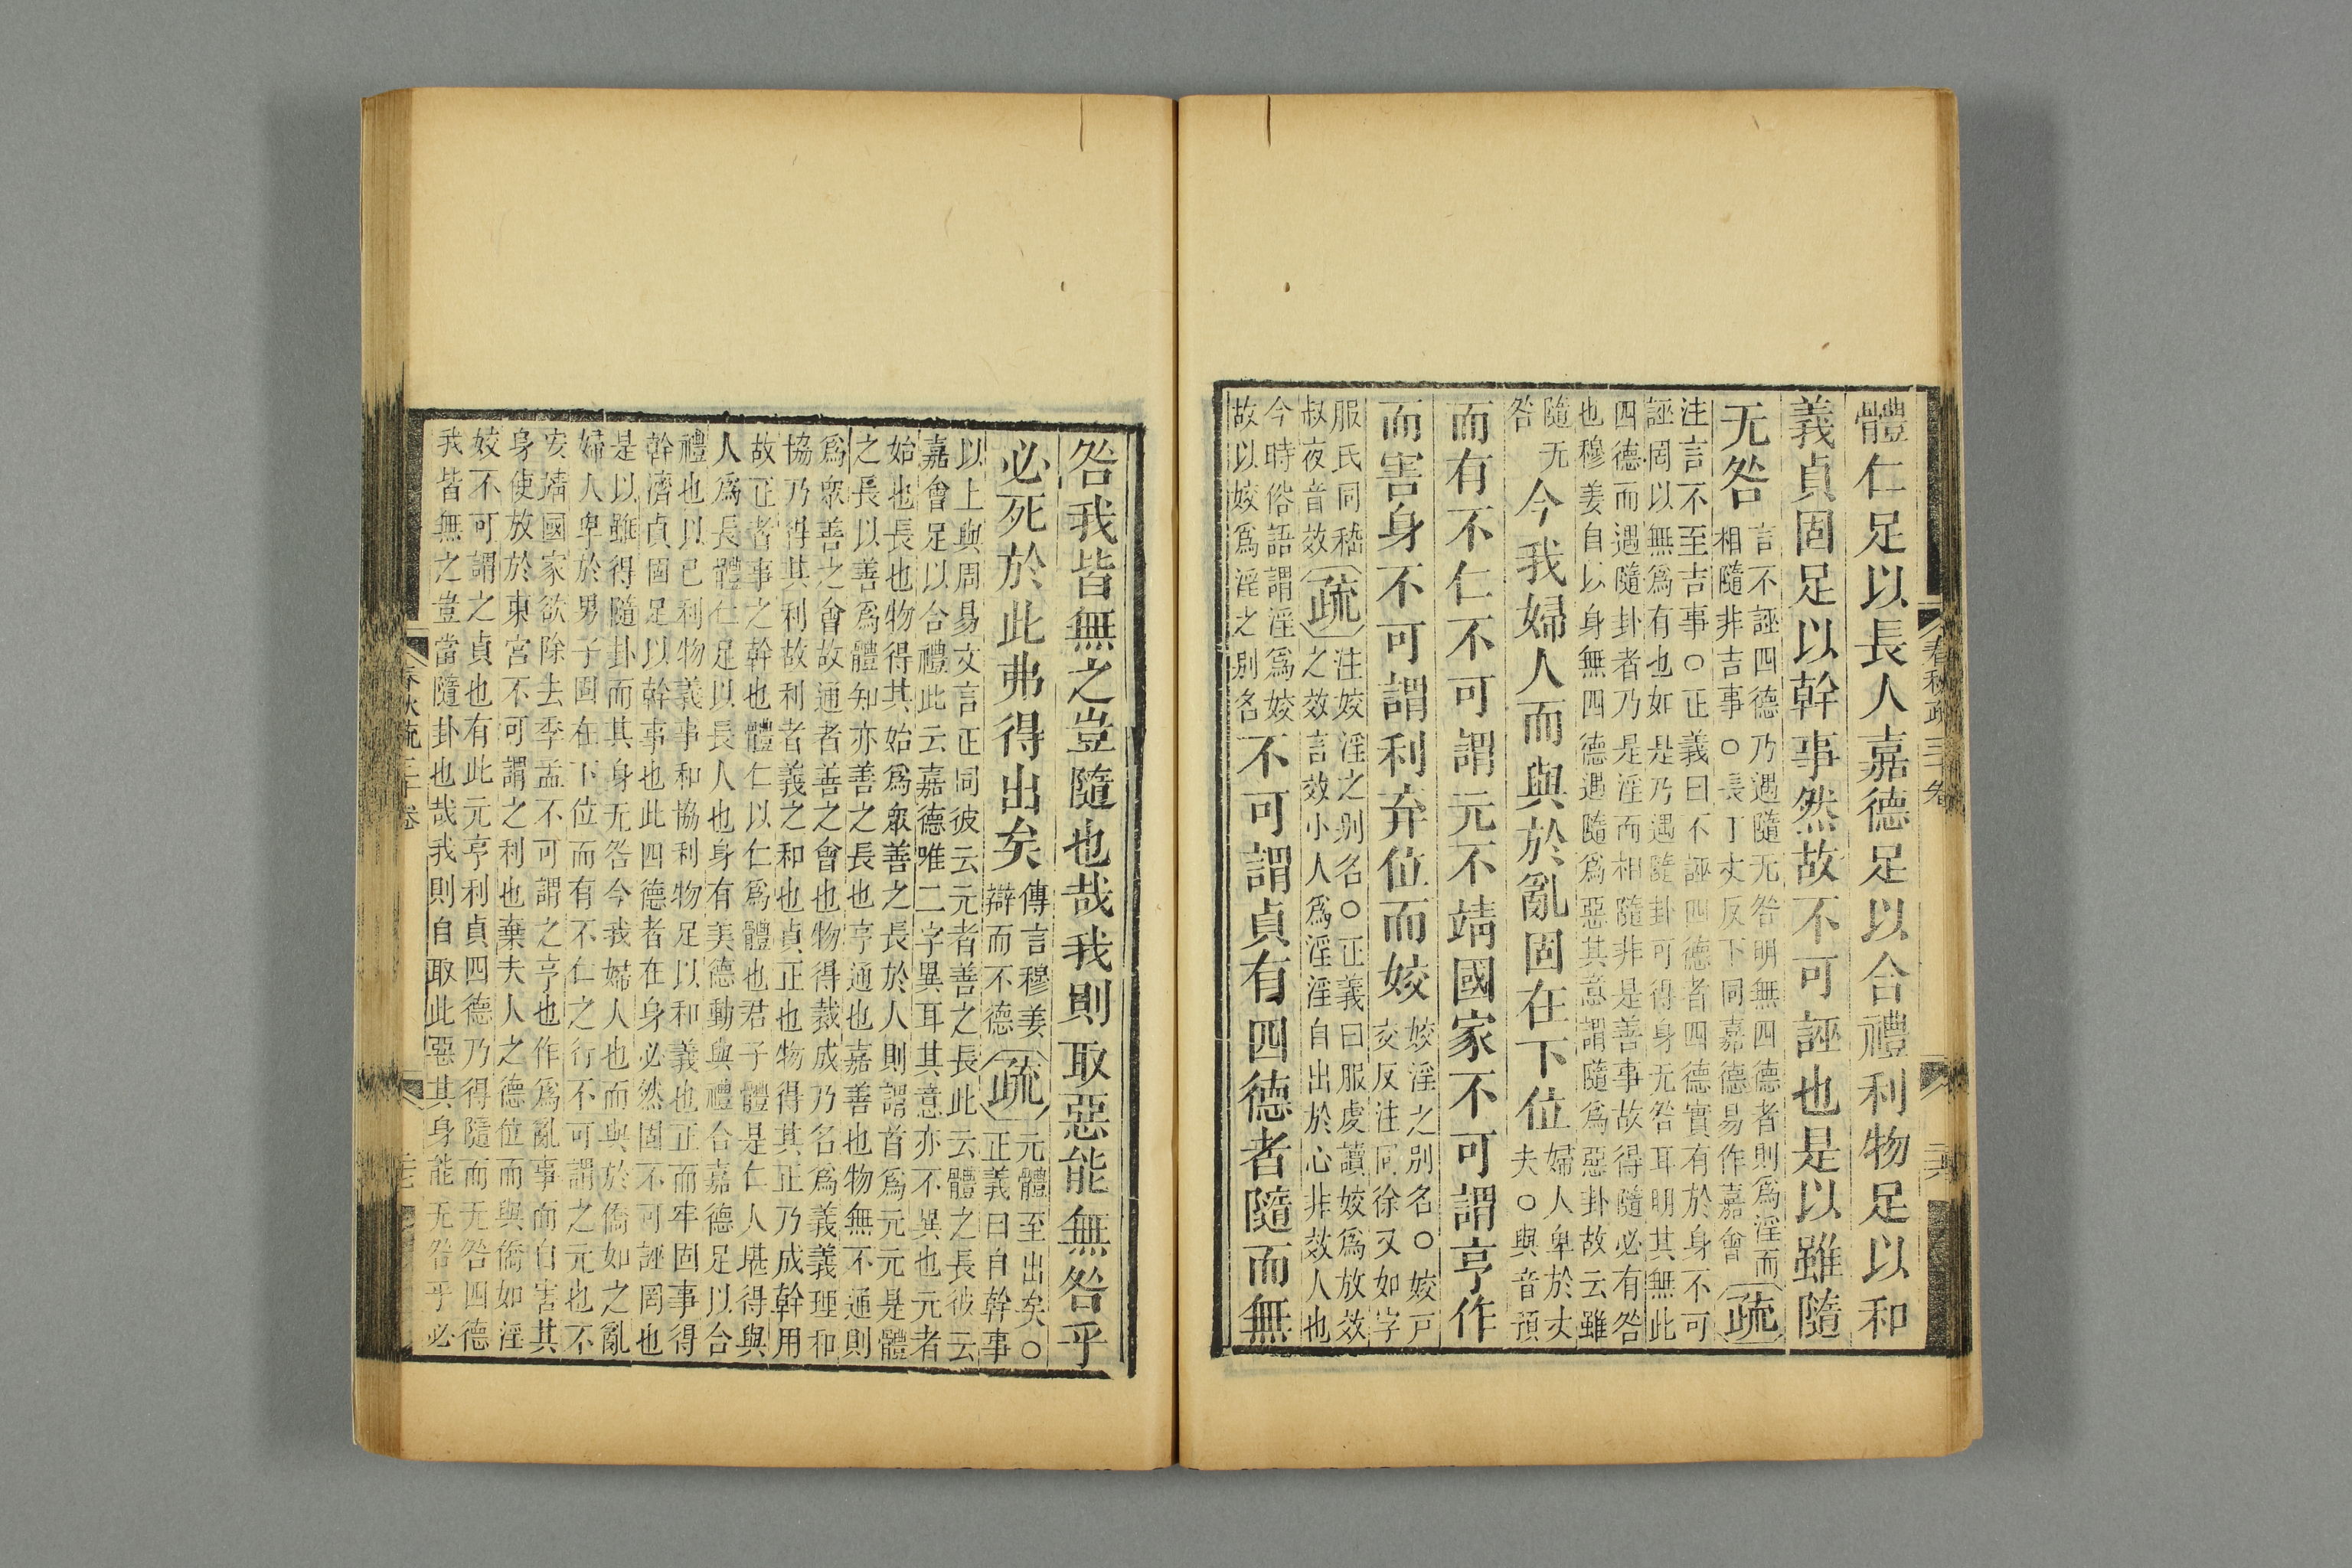 春秋疏三十卷
二六
體仁足以長人嘉德足以合禮利物足以和
義貞固足以幹事然故不可誣也是以雖隨
无咎
言不誣四德乃遇隨无咎明無四德者則爲淫而
相隨非吉事○長丁丈反下同嘉德易作嘉會
疏
注言不至吉事○正義曰不誣四德者四德實有於身不可
誣罔以無爲有也如是乃遇隨卦可得身无咎耳明其無此
四德而遇隨卦者乃是淫而相隨非是善事故得隨必有咎
也穆姜自以身無四德遇隨爲惡其意謂隨爲惡卦故云雖
隨无
咎
今我婦人而與於亂固在下位
婦人卑於丈
夫○與音預
而有不仁不可謂元不靖國家不可謂亨作
而害身不可謂利弃位而姣
姣淫之別名○姣戶
交反注同徐又如字
服氏同嵇
叔夜音效
疏
注姣淫之別名○正義曰服虔讀姣爲放效
之效言效小人爲淫淫自出於心非效人也
今時俗語謂淫爲姣
故以姣爲淫之別名
不可謂貞有四德者隨而無
咎我皆無之豈隨也哉我則取惡能無咎乎
必死於此弗得出矣
傳言穆姜
辯而不德
疏
元體至出矣○
正義曰自幹事
以上與周易文言正同彼云元者善之長此云體之長彼云
嘉會足以合禮此云嘉德唯二字異耳其意亦不異也元者
始也長也物得其始爲衆善之長於人則謂首爲元元是體
之長以善爲體知亦善之長也亨通也嘉善也物無不通則
爲衆善之會故通者善之會也物得裁成乃名爲義義理和
協乃得其利故利者義之和也貞正也物得其正乃成幹用
故正者事之幹也體仁以仁爲體也君子體是仁人堪得與
人爲長體仁足以長人也身有美德動與禮合嘉德足以合
禮也以己利物義事和協利物足以和義也正而牢固事得
幹濟貞固足以幹事也此四德者在身必然固不可誣罔也
是以雖得隨卦而其身无咎今我婦人也而與於僑如之亂
婦人卑於男子固在下位而有不仁之行不可謂之元也不
安靖國家欲除去季孟不可謂之亨也作爲亂事而自害其
身使放於東宮不可謂之利也棄夫人之德位而與僑如淫
姣不可謂之貞也有此元亨利貞四德乃得隨而无咎四德
我皆無之豈當隨卦也哉我則自取此惡其身能无咎乎必
春秋疏三十卷